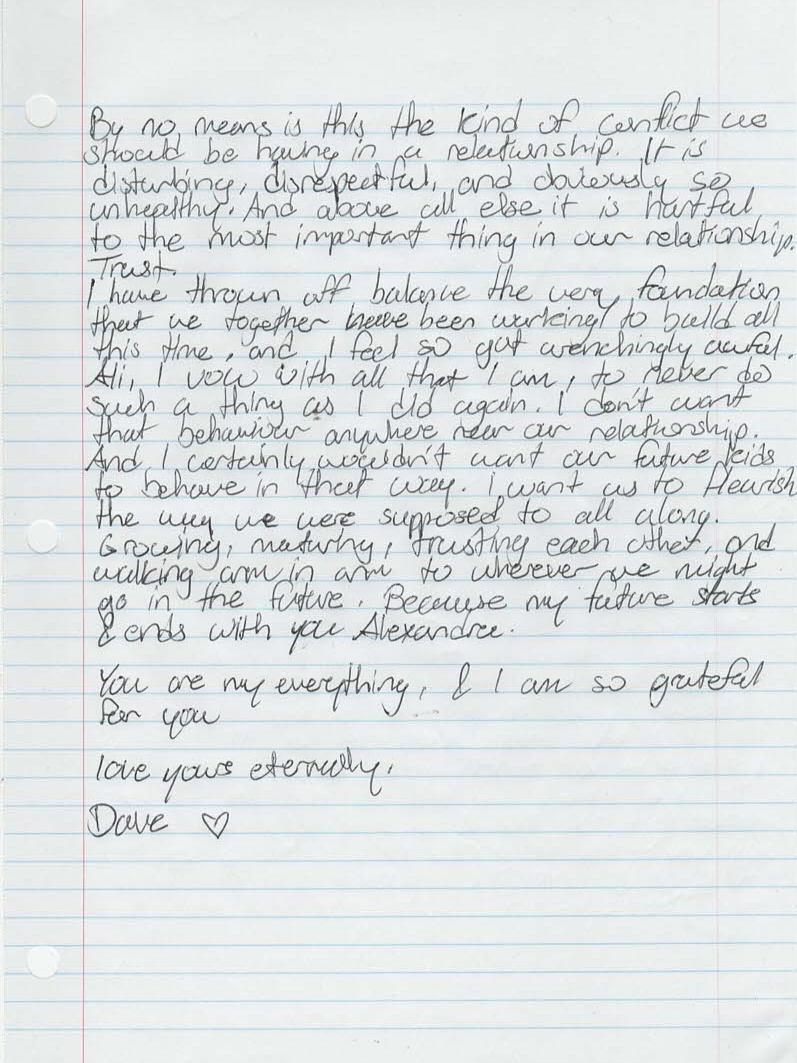 By no means is this the kind of conflict we
should be having in a relationship. It is
disturbing, disrespectful, and obviously so
unhealthy. And above all else it is hurtful
to the most important thing in our relationship.
Trust.
I have thrown off balance the very foundation
that we together have been working to build all
this time, and I feel so gut wrenchingly awful.
Ali, I vow with all that I am, to never do
such a thing as I did again. I don't want
that behaviour anywhere near our relationship.
And I certainly wouldn't want our future kids
to behave in that way. I want us to flourish
the way we were supposed to all along.
Growing, maturing, trusting each other, and
walking arm in arm to wherever we might
go in the future. Because my future starts
& ends with you Alexandra.
You are my everything, & I am so grateful
for you
love yours eternally,
Dave ♡